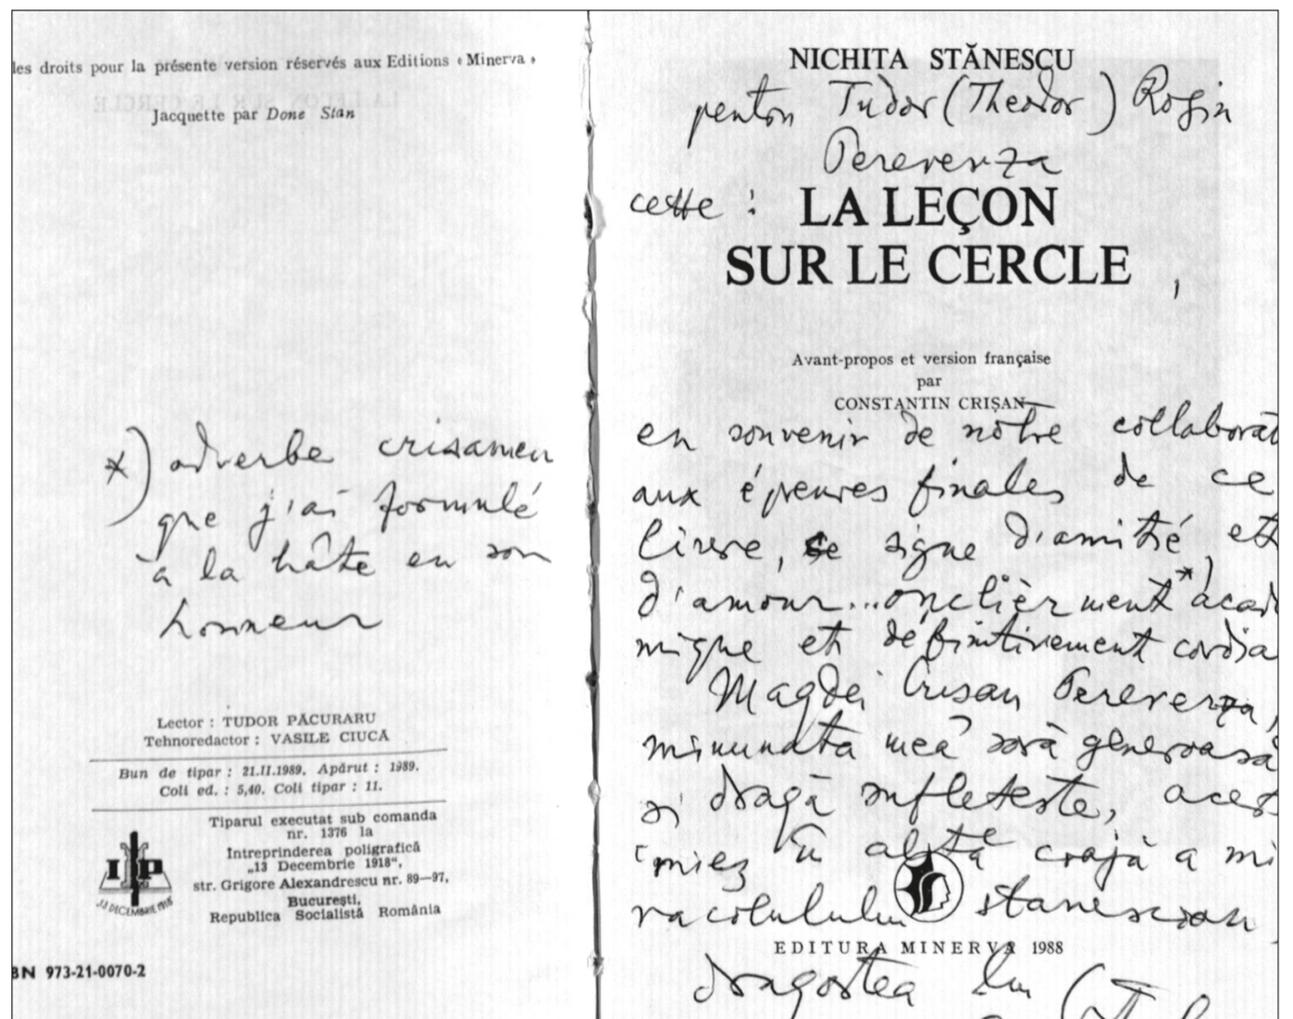 les droits pour la présente version réservés aux Editions « Minerva »
Jacquette par Done Stan
*) adverbe crisamen
que j'ai formulé
à la hâte en son
honneur
Lector : TUDOR PĂCURARU
Tehnoredactor : VASILE CIUCĂ
Bun de tipar : 21.II.1989. Apărut : 1989.
Coli ed. : 5,40. Coli tipar : 11.
Tiparul executat sub comanda
nr. 1376 la
Intreprinderea poligrafică
„13 Decembrie 1918",
str. Grigore Alexandrescu nr. 89—97,
București,
Republica Socialistă România
IP
13 DECEMBRIE 1918
BN 973-21-0070-2
NICHITA STĂNESCU
pentru Tudor (Theodor) Rogin
Pereverza
cette :
LA LEÇON
SUR LE CERCLE,
Avant-propos et version française
par
CONSTANTIN CRIȘAN
en souvenir de nôtre collaborat
aux épreuves finales de ce
livre, ce signe d'amitié et
d'amour... onclièrement *) acad
mique et définitivement cordia
Magdei Crisan Pereverza,
minunata mea soră generoasă
și dragă sufletește, acest
miez în altă coajă a mi
racolulului stanescian
EDITURA MINERVA 1988
dragostea lui